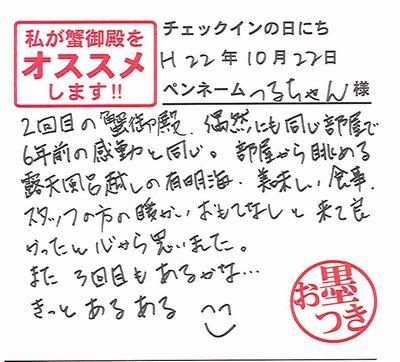 私が蟹御殿を
オススメ
します!!
チェックインの日にち
H22年10月22日
ペンネームつるちゃん様
2回目の蟹御殿、偶然にも同じ部屋で
6年前の感動と同じ。部屋から眺める
露天風呂越しの有明海、美味しい食事、
スタッフの方の暖かいおもてなしと来て良
かったと心から思いました。
また3回目もあるかな…
きっとあるある
お墨つき